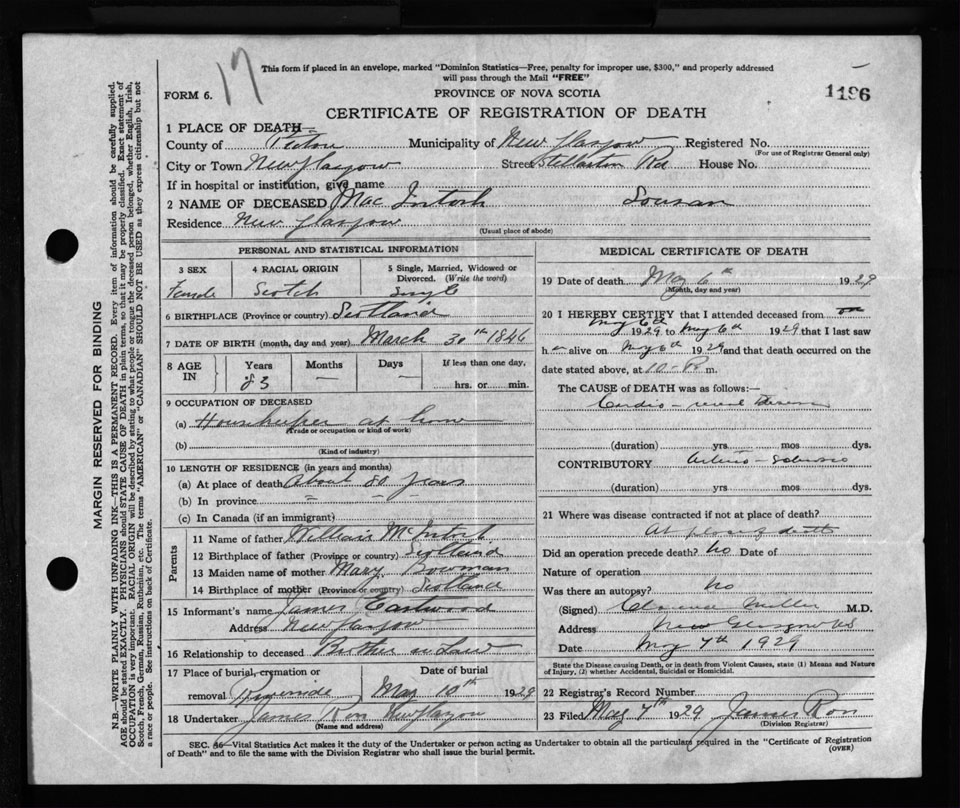 17
This form if placed in an envelope, marked "Dominion Statistics—Free, penalty for improper use, $300," and properly addressed
will pass through the Mail "FREE"
FORM 6.
PROVINCE OF NOVA SCOTIA
1196
CERTIFICATE OF REGISTRATION OF DEATH
1 PLACE OF DEATH—
County of Pictou Municipality of New Glasgow Registered No.
(For use of Registrar General only)
City or Town New Glasgow Street Stellarton Rd House No.
If in hospital or institution, give name
2 NAME OF DECEASED Mac Intosh Sousan
Residence New Glasgow
(Usual place of abode)
PERSONAL AND STATISTICAL INFORMATION
3 SEX 4 RACIAL ORIGIN 5 Single, Married, Widowed or Divorced. (Write the word)
Female Scotch Single
6 BIRTHPLACE (Province or country) Scotland
7 DATE OF BIRTH (month, day and year) March 30th 1846
8 AGE IN Years Months Days If less than one day,
83 — — hrs. or min.
9 OCCUPATION OF DECEASED
(a) Housekeeper at home
(Trade or occupation or kind of work)
(b)
(Kind of industry)
10 LENGTH OF RESIDENCE (in years and months)
(a) At place of death About 80 years
(b) In province " " "
(c) In Canada (if an immigrant)
Parents
11 Name of father William McIntosh
12 Birthplace of father (Province or country) Scotland
13 Maiden name of mother Mary Bowman
14 Birthplace of mother (Province or country) Scotland
15 Informant's name James Eastwood
Address New Glasgow
16 Relationship to deceased Brother in Law
17 Place of burial, cremation or Date of burial
removal Riverside May 10th 1929
18 Undertaker James Ross New Glasgow
(Name and address)
MEDICAL CERTIFICATE OF DEATH
19 Date of death May 6th 1929
(Month, day and year)
20 I HEREBY CERTIFY that I attended deceased from on
May 6th 1929 to May 6th 1929 that I last saw
h er alive on May 6th 1929 and that death occurred on the
date stated above, at 10 P. m.
The CAUSE OF DEATH was as follows:—
Cardio-renal Disease
(duration) yrs mos dys.
CONTRIBUTORY Arterio-sclerosis
(duration) yrs mos dys.
21 Where was disease contracted if not at place of death?
At place of death
Did an operation precede death? No Date of
Nature of operation
Was there an autopsy? No
(Signed) Clarence Miller M.D.
Address New Glasgow NS
Date May 7th 1929
State the Disease causing Death, or in death from Violent Causes, state (1) Means and Nature
of Injury, (2) whether Accidental, Suicidal or Homicidal.
22 Registrar's Record Number
23 Filed May 7th 1929 James Ross
(Division Registrar)
SEC. 46—Vital Statistics Act makes it the duty of the Undertaker or person acting as Undertaker to obtain all the particulars required in the "Certificate of Registration
of Death" and to file the same with the Division Registrar who shall issue the burial permit.
(OVER)
MARGIN RESERVED FOR BINDING
N.B.—WRITE PLAINLY WITH UNFADING INK—THIS IS A PERMANENT RECORD. Every item of information should be carefully supplied.
AGE should be stated EXACTLY. PHYSICIANS should STATE CAUSE OF DEATH in plain terms, so that it may be properly classified. Exact statement of
OCCUPATION is very important. RACIAL ORIGIN will be described by stating to what people or tongue the deceased person belonged, whether English, Irish,
Scotch, French, German, Russian, Ruthenian, etc. The terms "AMERICAN" or "CANADIAN" SHOULD NOT BE USED as they express citizenship but not
a race or people. See instructions on back of Certificate.